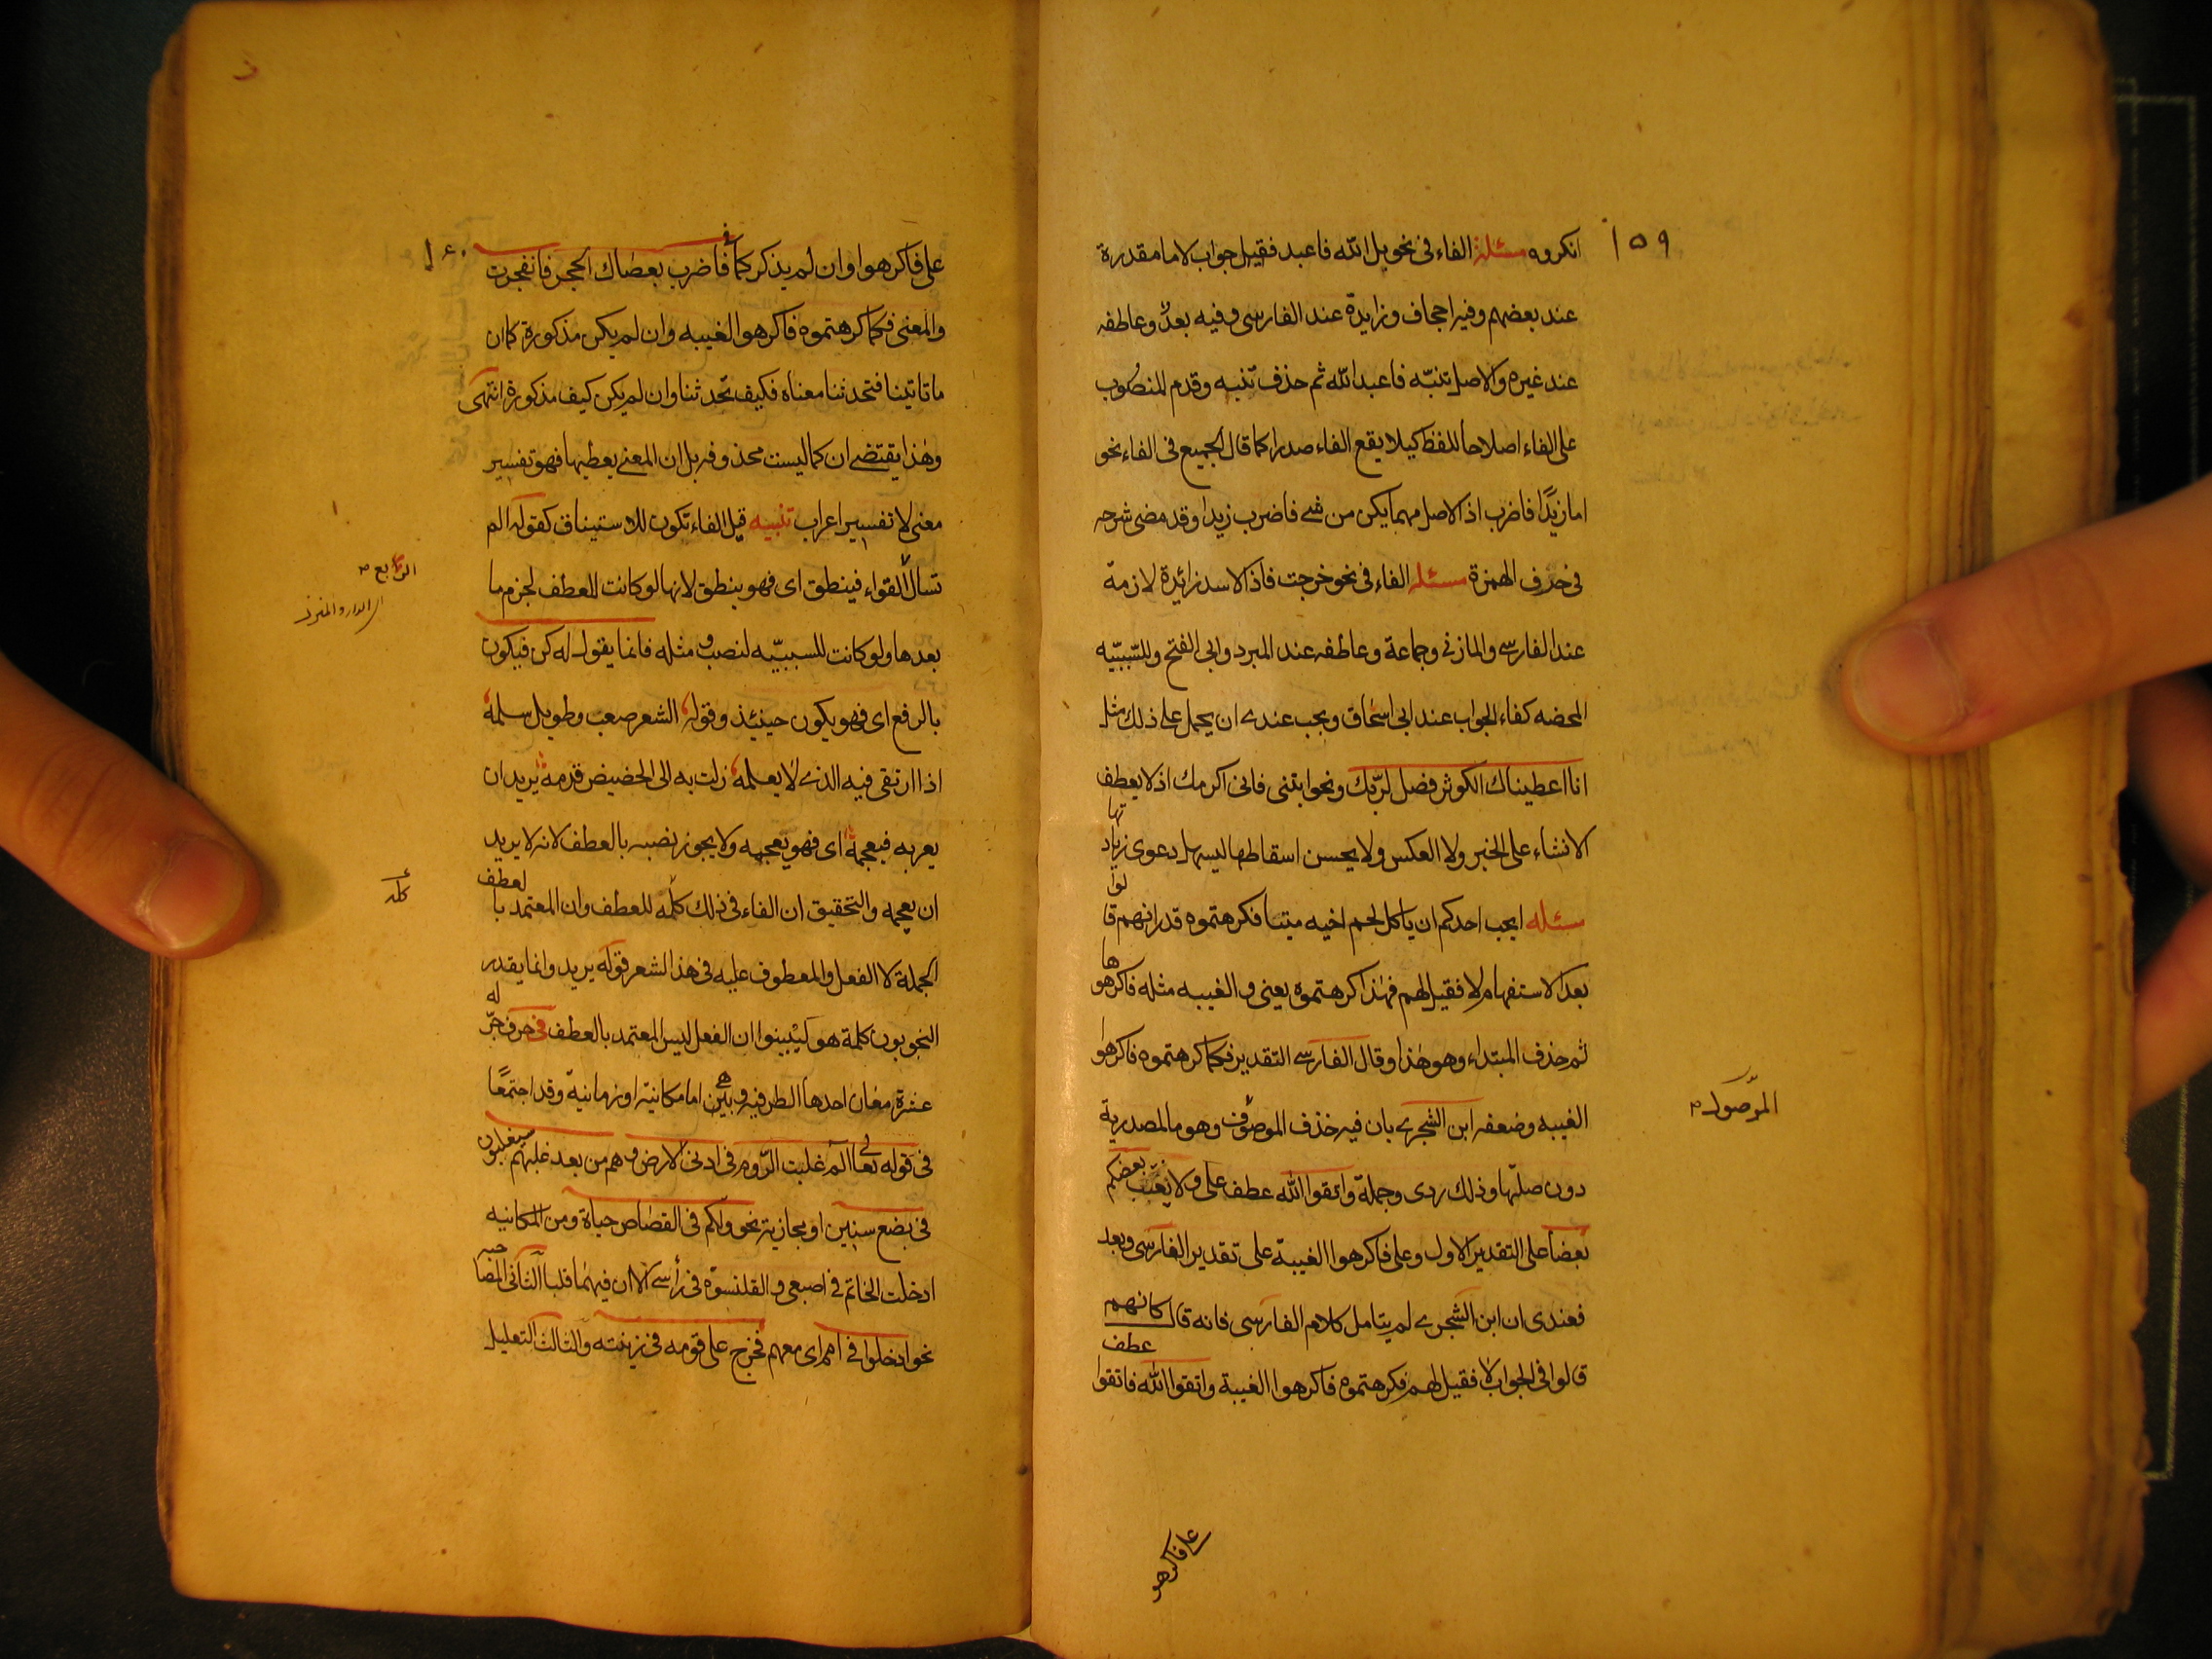 ١٥٩
انكروه مسئلة الفاء فى نحو بل الله فاعبد فقيل جواب لاما مقدرة
عند بعضهم وفيه اجحاف وزايدة عند الفارسى وفيه بعد وعاطفه
عند غيره والاصل تنبّه فاعبد الله ثم حذف تنبه وقدم المنصوب
على الفاء اصلاحا للفظ كيلا يقع الفاء صدرا كما قال الجميع فى الفاء نحو
اما زيدًا فاضرب اذ الاصل مهما يكن من شئ فاضرب زيدا وقد مضى شرحه
فى حرف الهمزة مسئله الفاء فى نحو خرجت فاذا الاسد زائدة لازمة
عند الفارسى والمازنى وجماعة وعاطفه عند المبرد وابى الفتح وللسّببيّه
المحضه كفاء الجواب عند ابى اسحاق ويجب عندى ان يحمل على ذلك مثل
انا اعطيناك الكوثر فصل لربّك ونحو ايتنى فانى اكرمك اذ لا يعطف
الانشاء على الخبر ولا العكس ولا يحسن اسقاطها ليسهل دعوى زيادتها
مسئله ايحب احدكم ان ياكل لحم اخيه ميتا فكرهتموه قدر انهم قالوا
بعد الاستفهام لا فقيل لهم فهٰذا كرهتموه يعنى و الغيبه مثله فاكرهوها
ثم حذف المبتداء وهو هٰذا وقال الفارسى التقدير فكما كرهتموه فاكرهوا
الغيبه وضعفه ابن الشجرى بان فيه حذف الموصوف وهو ما المصدرية
الموصول
دون صلتها وذلك ردى وجملة واتقوا الله عطف على ولا يغتب بعضكم
بعضا على التقدير الاول وعلى فاكرهوا الغيبة على تقدير الفارسى وبعد
فعندى ان ابن الشجرى لم يتامل كلام الفارسى فانه قال كانهم
قالوا فى الجواب لا فقيل لهم فكرهتموه فاكرهوا الغيبة واتقوا الله فاتقوا عطف
على فاكرهوا
١٦٠
على فاكرهوا وان لم يذكر كما فى فاضرب بعصاك الحجر فانفجرت
والمعنى فكما كرهتموه فاكرهوا الغيبه وان لم يكن مذكورة كما ان
ما تاتينا فتحدثنا معناه فكيف تحدثنا وان لم يكن كيف مذكورة انتهى
وهٰذا يقتضى ان كما ليست محذوفه بل ان المعنى يعطيها فهو تفسير
معنى لا تفسير اعراب تنبيه قيل الفاء تكون للاستيناف كقوله الم
الربع
اى الدار والمنزل
تسال القواء فينطق اى فهو ينطق لانها لو كانت للعطف لجزم ما
بعدها ولو كانت للسببيّه لنصب و مثله فانما يقول له كن فيكون
بالرفع اى فهو يكون حينئذ وقوله الشعر صعب وطويل سلمه
اذا ارتقى فيه الذى لا يعلمه زلت به الى الحضيض قدمه يريد ان
يعربه فيعجمه اى فهو يعجمه ولا يجوز نصبه بالعطف لانه لا يريد
ان يعجمه والتحقيق ان الفاء فى ذلك كلّه للعطف وان المعتمد بالعطف
كله
الجملة لا الفعل والمعطوف عليه فى هذا الشعر قوله يريد وانما يقدر
النحويون كلمة هو ليبينوا ان الفعل ليس المعتمد بالعطف فى حرف جرّ له
عشرة معان احدها الظرفيه وهى اما مكانية او زمانية وقد اجتمعا
فى قوله تعالى الم غلبت الرّوم فى ادنى الارض وهم من بعد غلبهم سيغلبون
فى بضع سنين او مجازية نحو ولكم فى القصاص حياة ومن المكانيه
ادخلت الخاتم فى اصبعى والقلنسوة فى رأسى الا ان فيهما قلبا الثانى المصاحبه
نحو ادخلوا فى امم اى معهم فخرج على قومه فى زينته والثالث التعليل